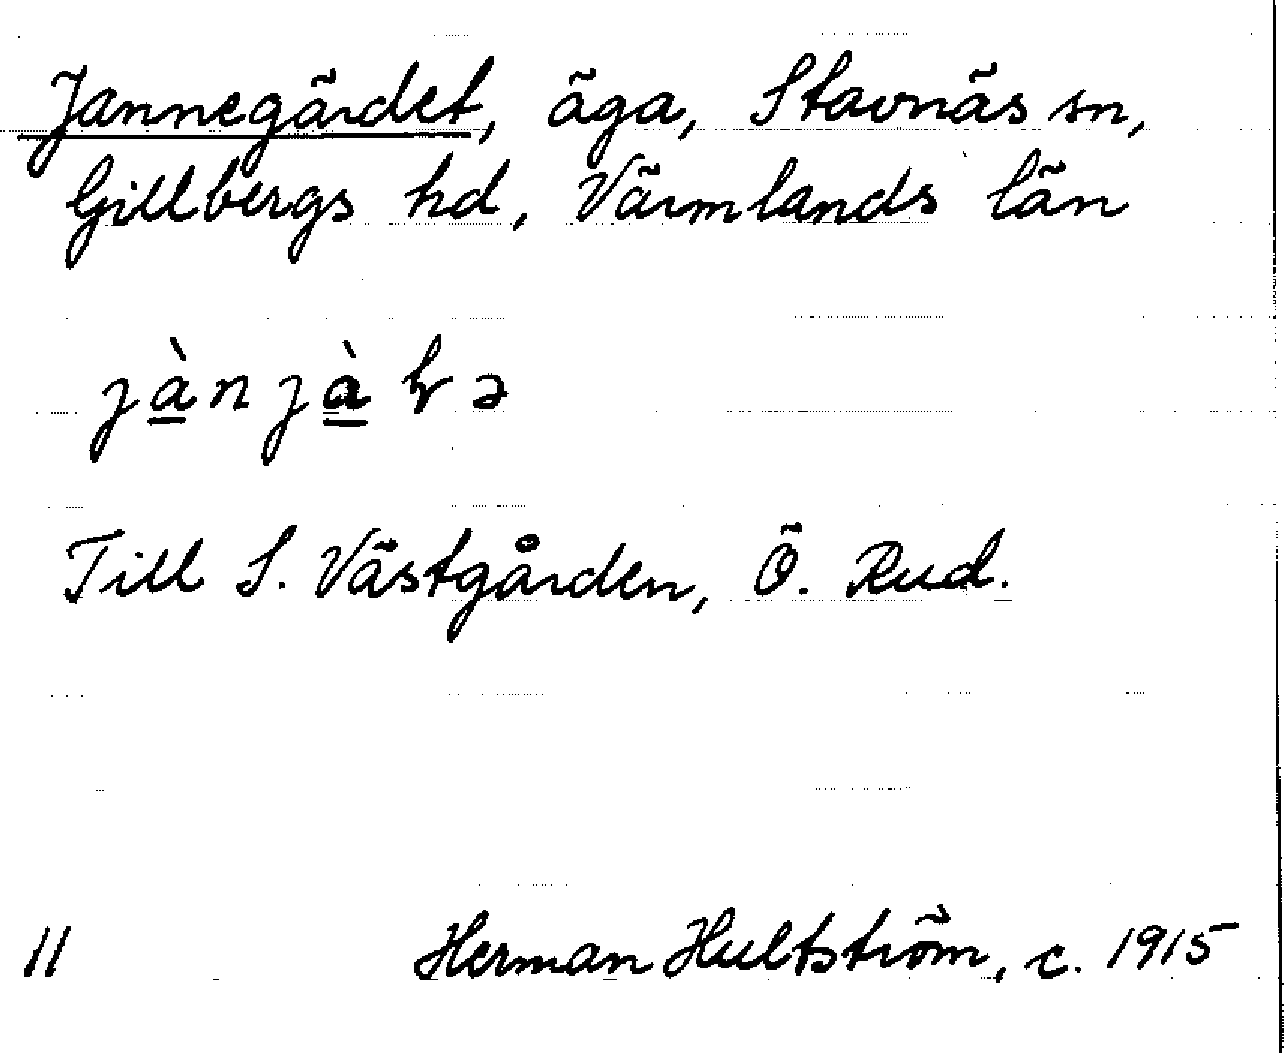 Jannegärdet, äga, Stavnäs sn,
Gillbergs hd, Värmlands län
Till S. Västgården, Ö. Rud.
11 Herman Hultström, c. 1915